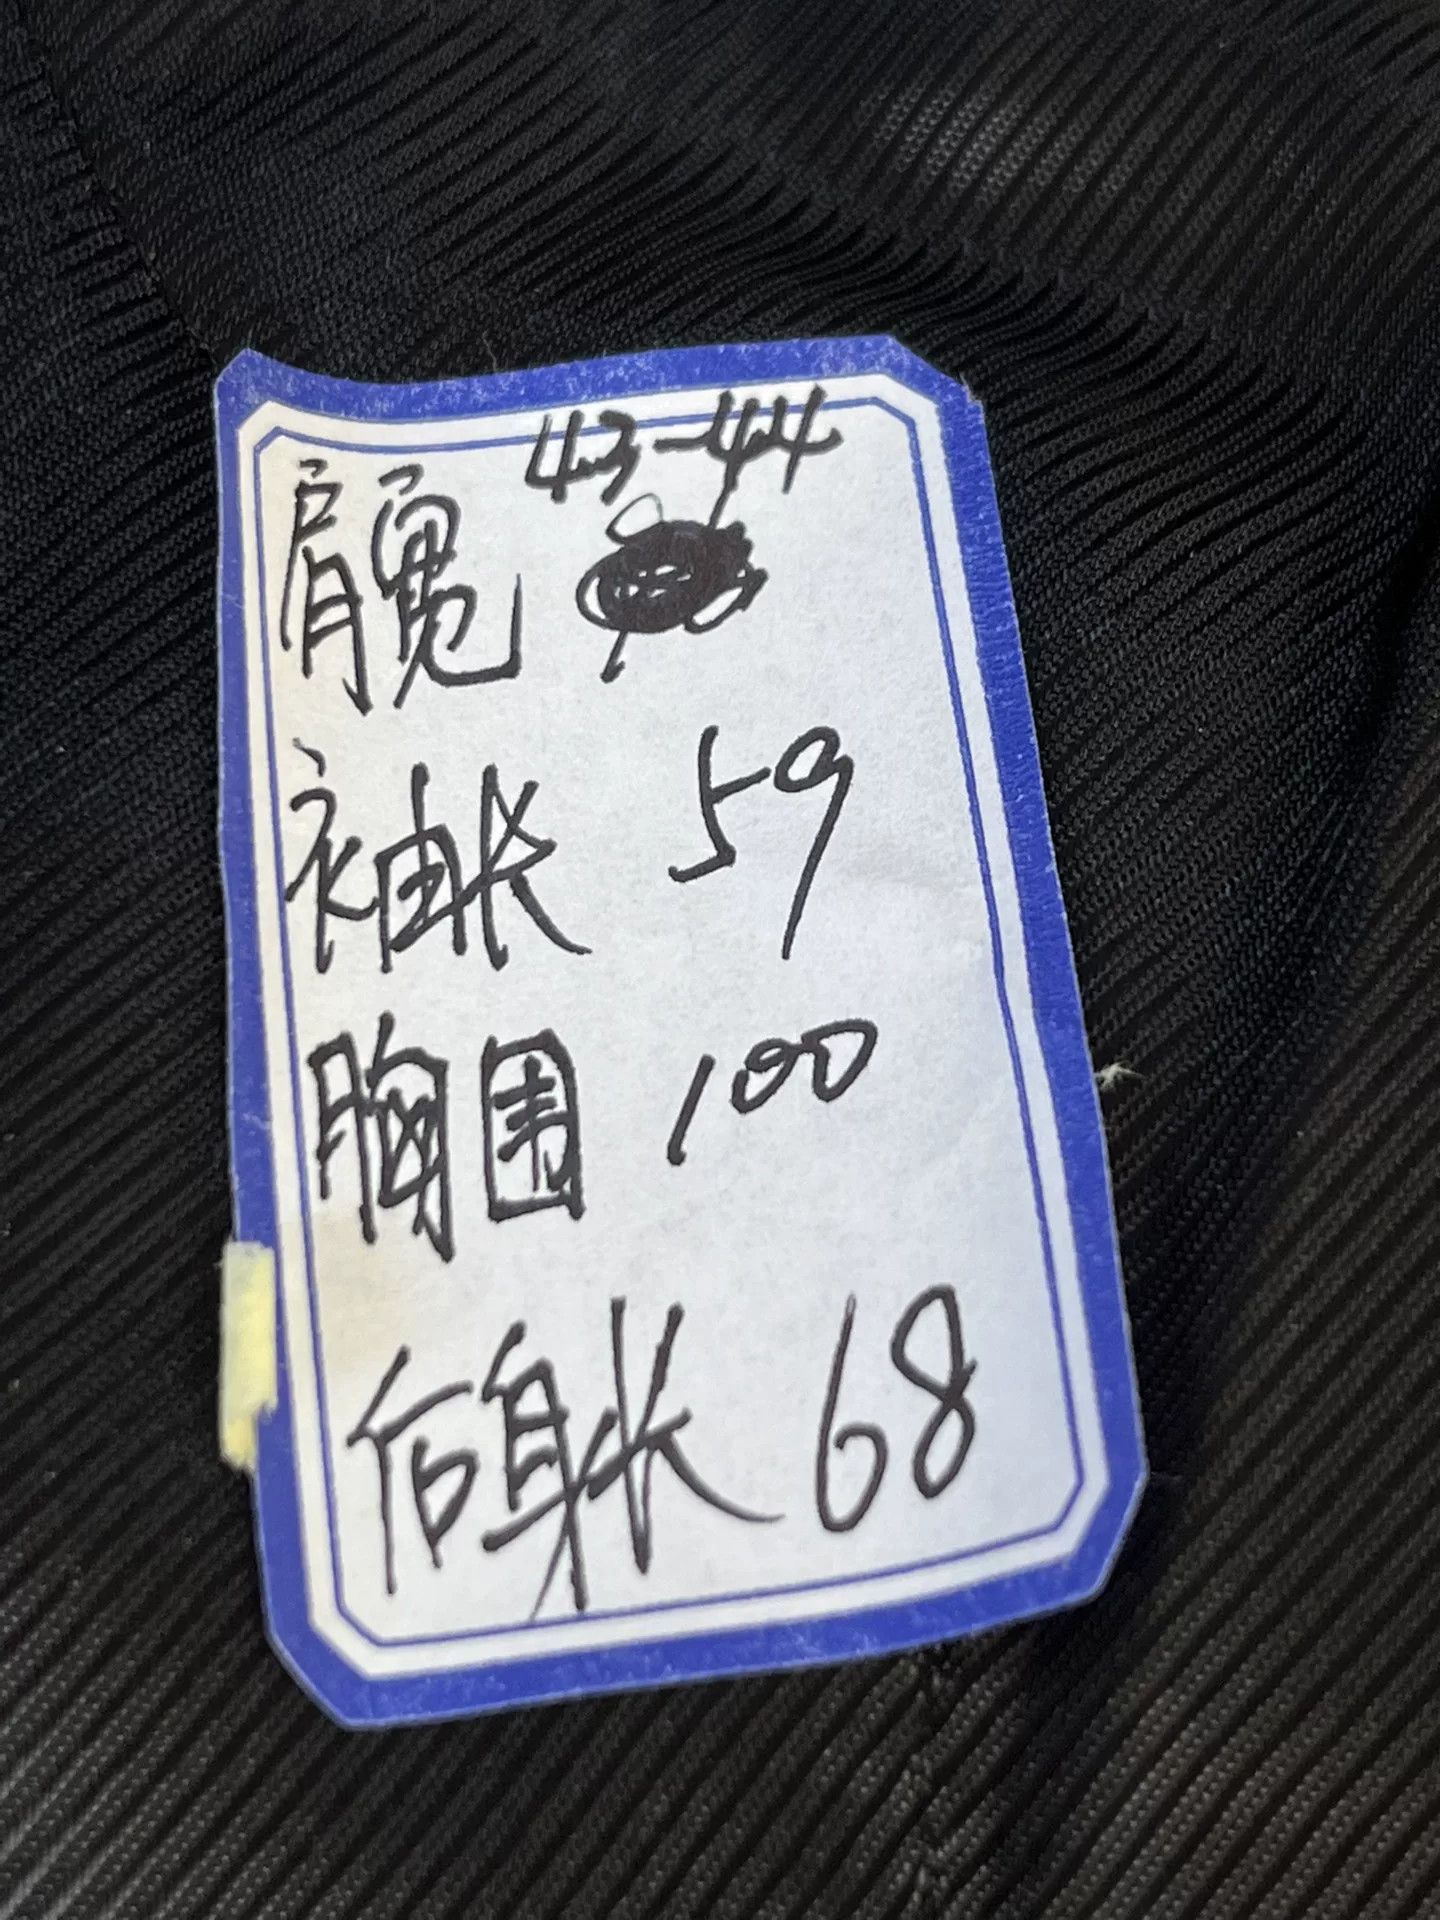 肩宽 43-44
袖长 59
胸围 100
后身长 68